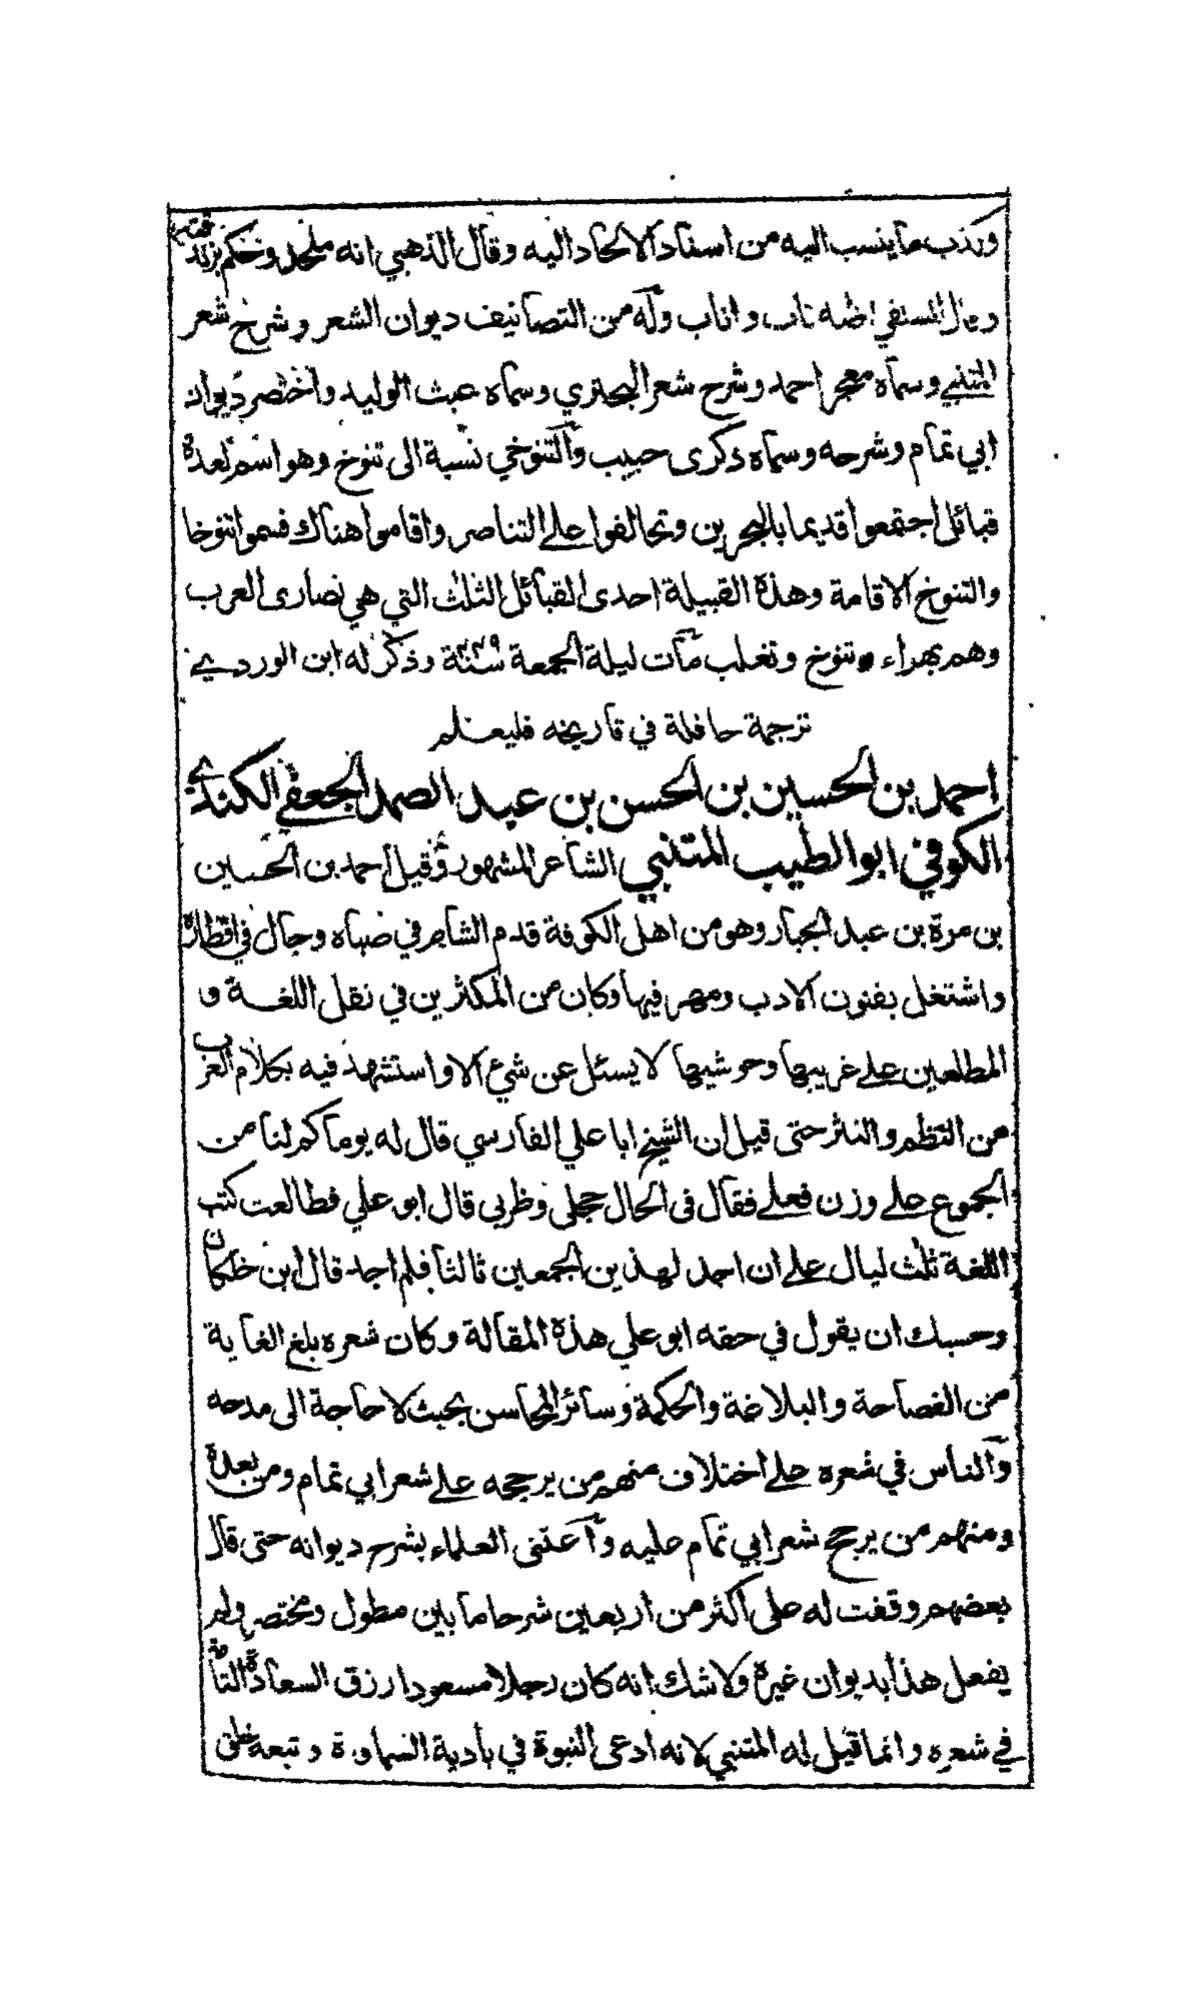 وكذب ما ينسب اليه من اسناد الالحاد اليه وقال الذهبي انه ملحد وحكم بزندقته
وقال السلفي اظنه تاب واناب وله من التصانيف ديوان الشعر وشرح شعر
المتنبي وسماه معجز احمد وشرح شعر البحتري وسماه عبث الوليد واختصر ديوان
ابي تمام وشرحه وسماه ذكرى حبيب والتنوخي نسبة الى تنوخ وهو اسم لعدة
قبائل اجتمعوا قديما بالبحرين وتحالفوا على التناصر واقاموا هناك فسموا تنوخا
والتنوخ الاقامة وهذه القبيلة احدى القبائل الثلث التي هي نصارى العرب
وهم بهراء وتنوخ وتغلب مات ليلة الجمعة سنة ٤٤٩ وذكر له ابن الوردي
ترجمة حافلة في تاريخه فليعلم
احمد بن الحسين بن الحسن بن عبد الصمد الجعفي الكندي
الكوفي ابو الطيب المتنبي الشاعر المشهور وقيل احمد بن الحسين
بن مرة بن عبد الجبار وهو من اهل الكوفة قدم الشام في صباه وجال في اقطاره
واشتغل بفنون الادب ومهر فيها وكان من المكثرين في نقل اللغة و
المطلعين على غريبها وحوشيها لا يسئل عن شيء الا واستشهد فيه بكلام العرب
من النظم والنثر حتى قيل ان الشيخ ابا علي الفارسي قال له يوما كم لنا من
الجموع على وزن فعلى فقال في الحال حجلى وظربى قال ابو علي فطالعت كتب
اللغة ثلث ليال على ان اجد لهذين الجمعين ثالثا فلم اجد قال ابن خلكان
وحسبك ان يقول في حقه ابو علي هذه المقالة وكان شعره بلغ الغاية
من الفصاحة والبلاغة والحكمة وسائر المحاسن بحيث لا حاجة الى مدحه
والناس في شعره على اختلاف منهم من يرجحه على شعر ابي تمام ومن بعده
ومنهم من يرجح شعر ابي تمام عليه واعتنى العلماء بشرح ديوانه حتى قال
بعضهم وقفت له على اكثر من اربعين شرحا ما بين مطول ومختصر ولم
يفعل هذا بديوان غيره ولا شك انه كان رجلا مسعودا رزق السعادة التامة
في شعره وانما قيل له المتنبي لانه ادعى النبوة في بادية السماوة وتبعه خلق